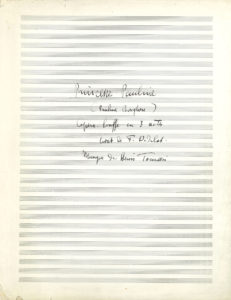 Princesse Pauline
(Pauline Borghese)
opéra bouffe en 3 actes
livret de F. Didelot
Musique de Henri Tomasi